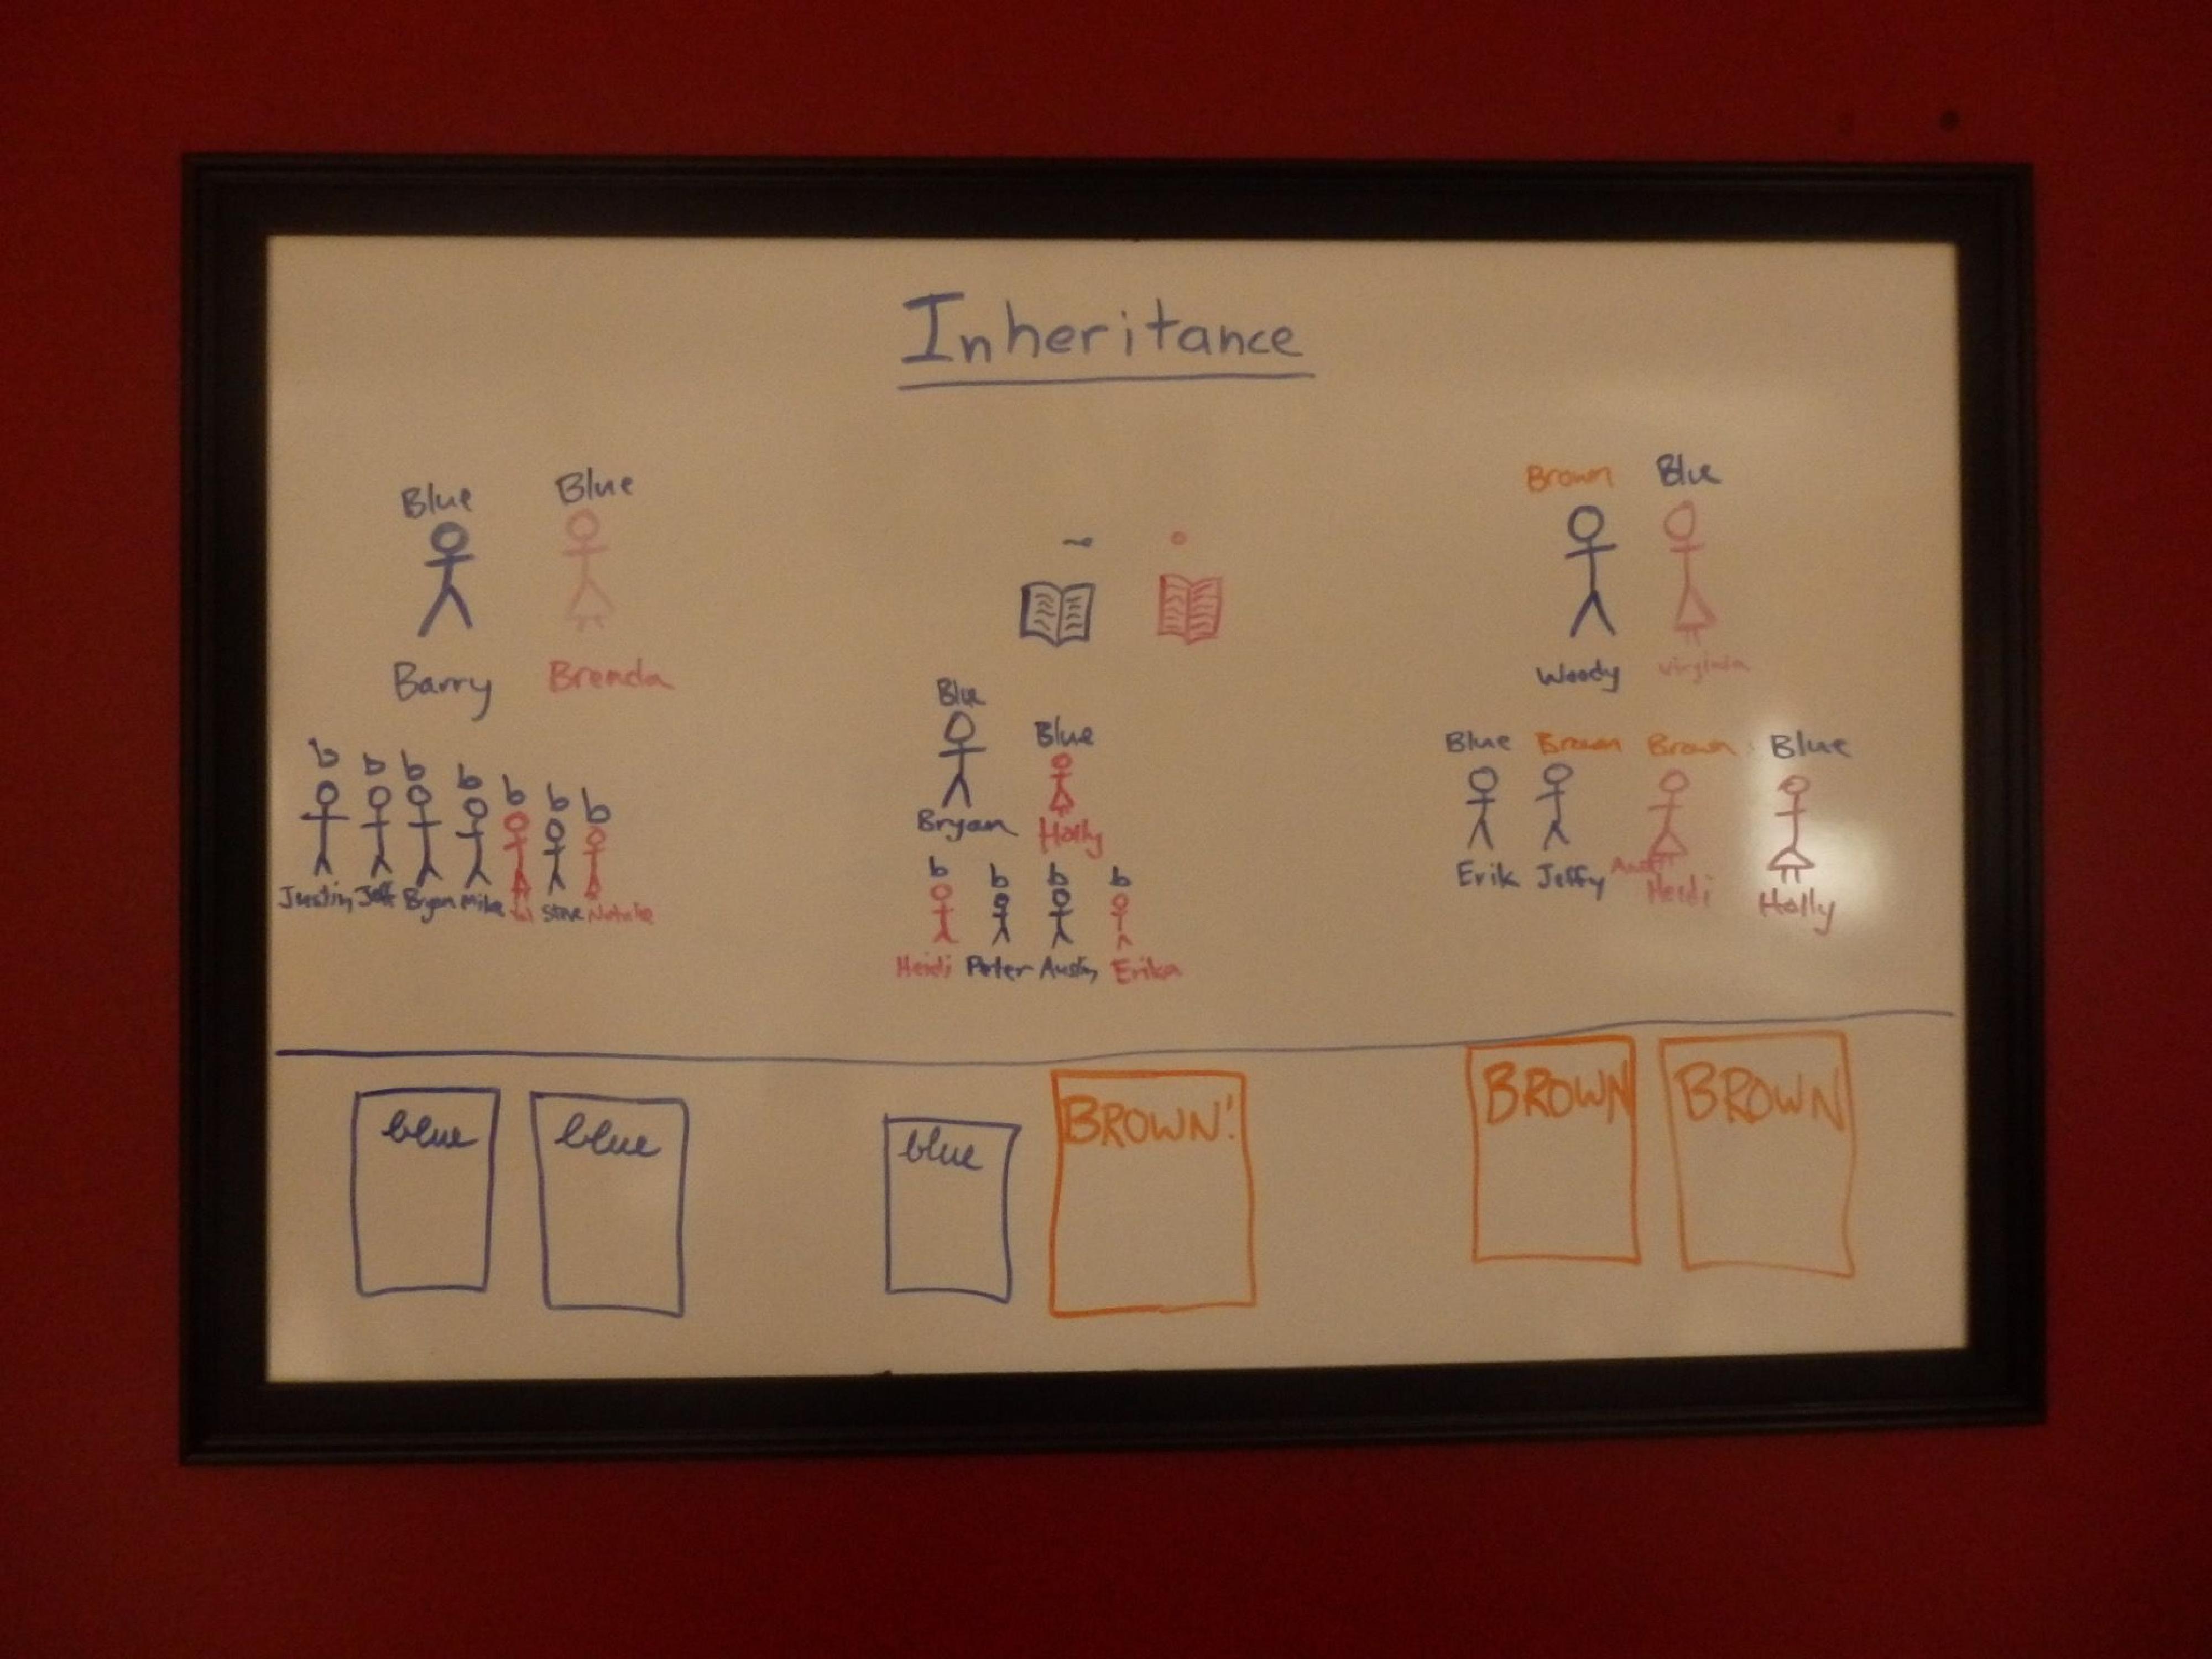 Inheritance
Blue Blue
Barry Brenda
b b b b b b b
Justin Jeff Bryan Mike Steve Natalie
Blue Blue
Bryan Holly
b b b b
Heidi Peter Austin Erika
Brown Blue
Woody Virginia
Blue Brown Brown Blue
Erik Jeffy Aunt Heidi Holly
blue blue
blue BROWN!
BROWN BROWN